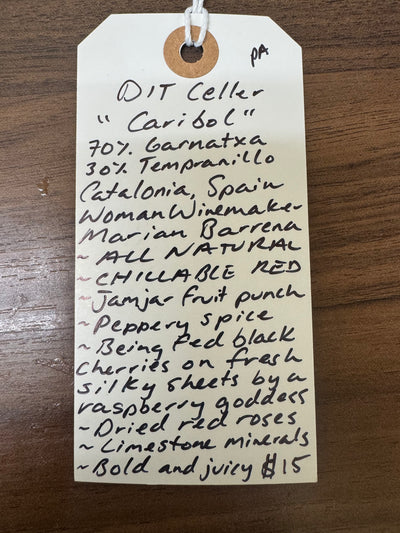 PA
DIT Celler
"Caribol"
70% Garnatxa
30% Tempranillo
Catalonia, Spain
Woman Winemaker
Marian Barrena
~ ALL NATURAL
~ CHILLABLE RED
~ Jamjar fruit punch
~ Peppery spice
~ Being Fed black
cherries on fresh
silky sheets by a
raspberry goddess
~ Dried red roses
~ Limestone minerals
~ Bold and juicy $15